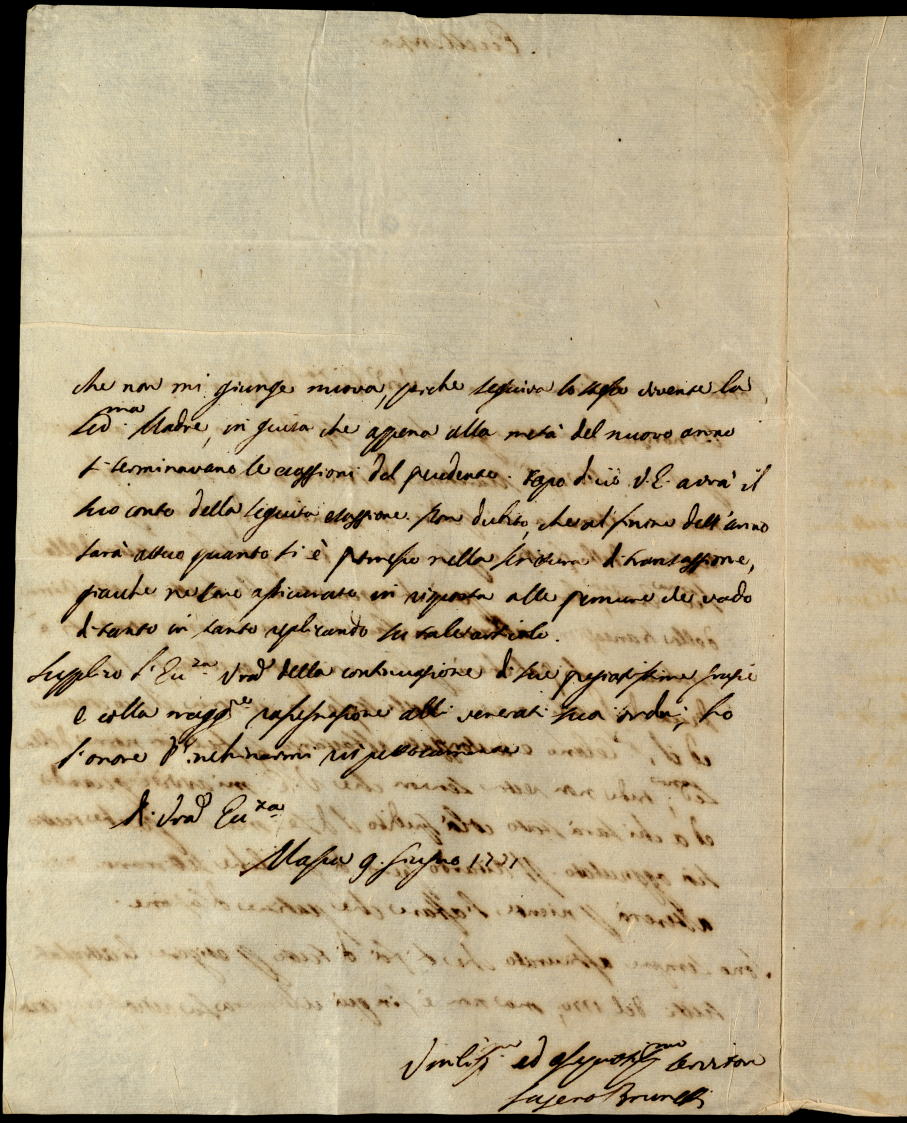 che non mi giunge nuova, perche seguiva lo stesso vivente la
Madre, in guisa che appena alla metà del nuovo anno
si terminavano le esazzioni del precedente. Dopo di ciò V. E. avrà il
suo conto della seguita esazzione. Non dubito, che al finire dell'anno
sarà atteso quanto si è promesso nella scrittura di transazzione,
giacche ne sono assicurato in risposta alle premure che vado
di tanto in tanto replicando su tale articolo.
Supplico l'Ecc.za Vra della continuazione di sue pregiatissime grazie
e colla magg.re rassegnazione alli venerati suoi ordini, ho
l'onore d'inchinarmi rispettosamente
Di Vra Ecc.za
Massa 9. Giugno
Umiliss.mo ed ossequiosiss.mo servitore
Brunelli